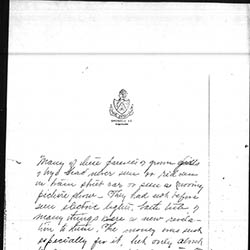 Many of these parents & grown girls
& boys had never seen or ridden
in train street car or seen a moving
picture show. They had not before
seen electric lights, bath tubs &
many things were a new revela-
tion to them. The money was such
especially for it, but only about